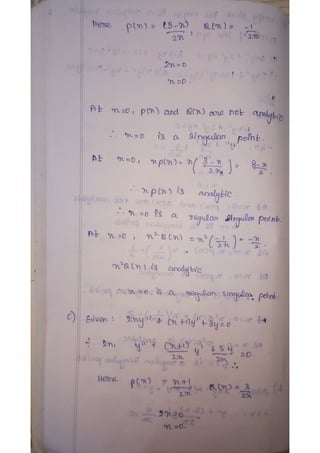 Here p(x) = (3-x)/2x , Q(x) = -1/2x
2x=0
x=0
At x=0, p(x) and Q(x) are not analytic
∴ x=0 is a singular point.
At x=0, xp(x) = x(3-x/2x) = 3-x/2.
∴ xp(x) is analytic.
∴ x=0 is a regular singular point.
At x=0, x²Q(x) = x²(-1/2x) = -x/2
x²Q(x) is analytic
∴ x=0 is a regular singular point.
c) Given : 2xy'' + (x+1)y' + 3y=0
÷ 2x, y'' + (x+1)/2x y' + 3y/2x =0
Here p(x) = x+1/2x Q(x) = 3/2x
2x=0
x=0.